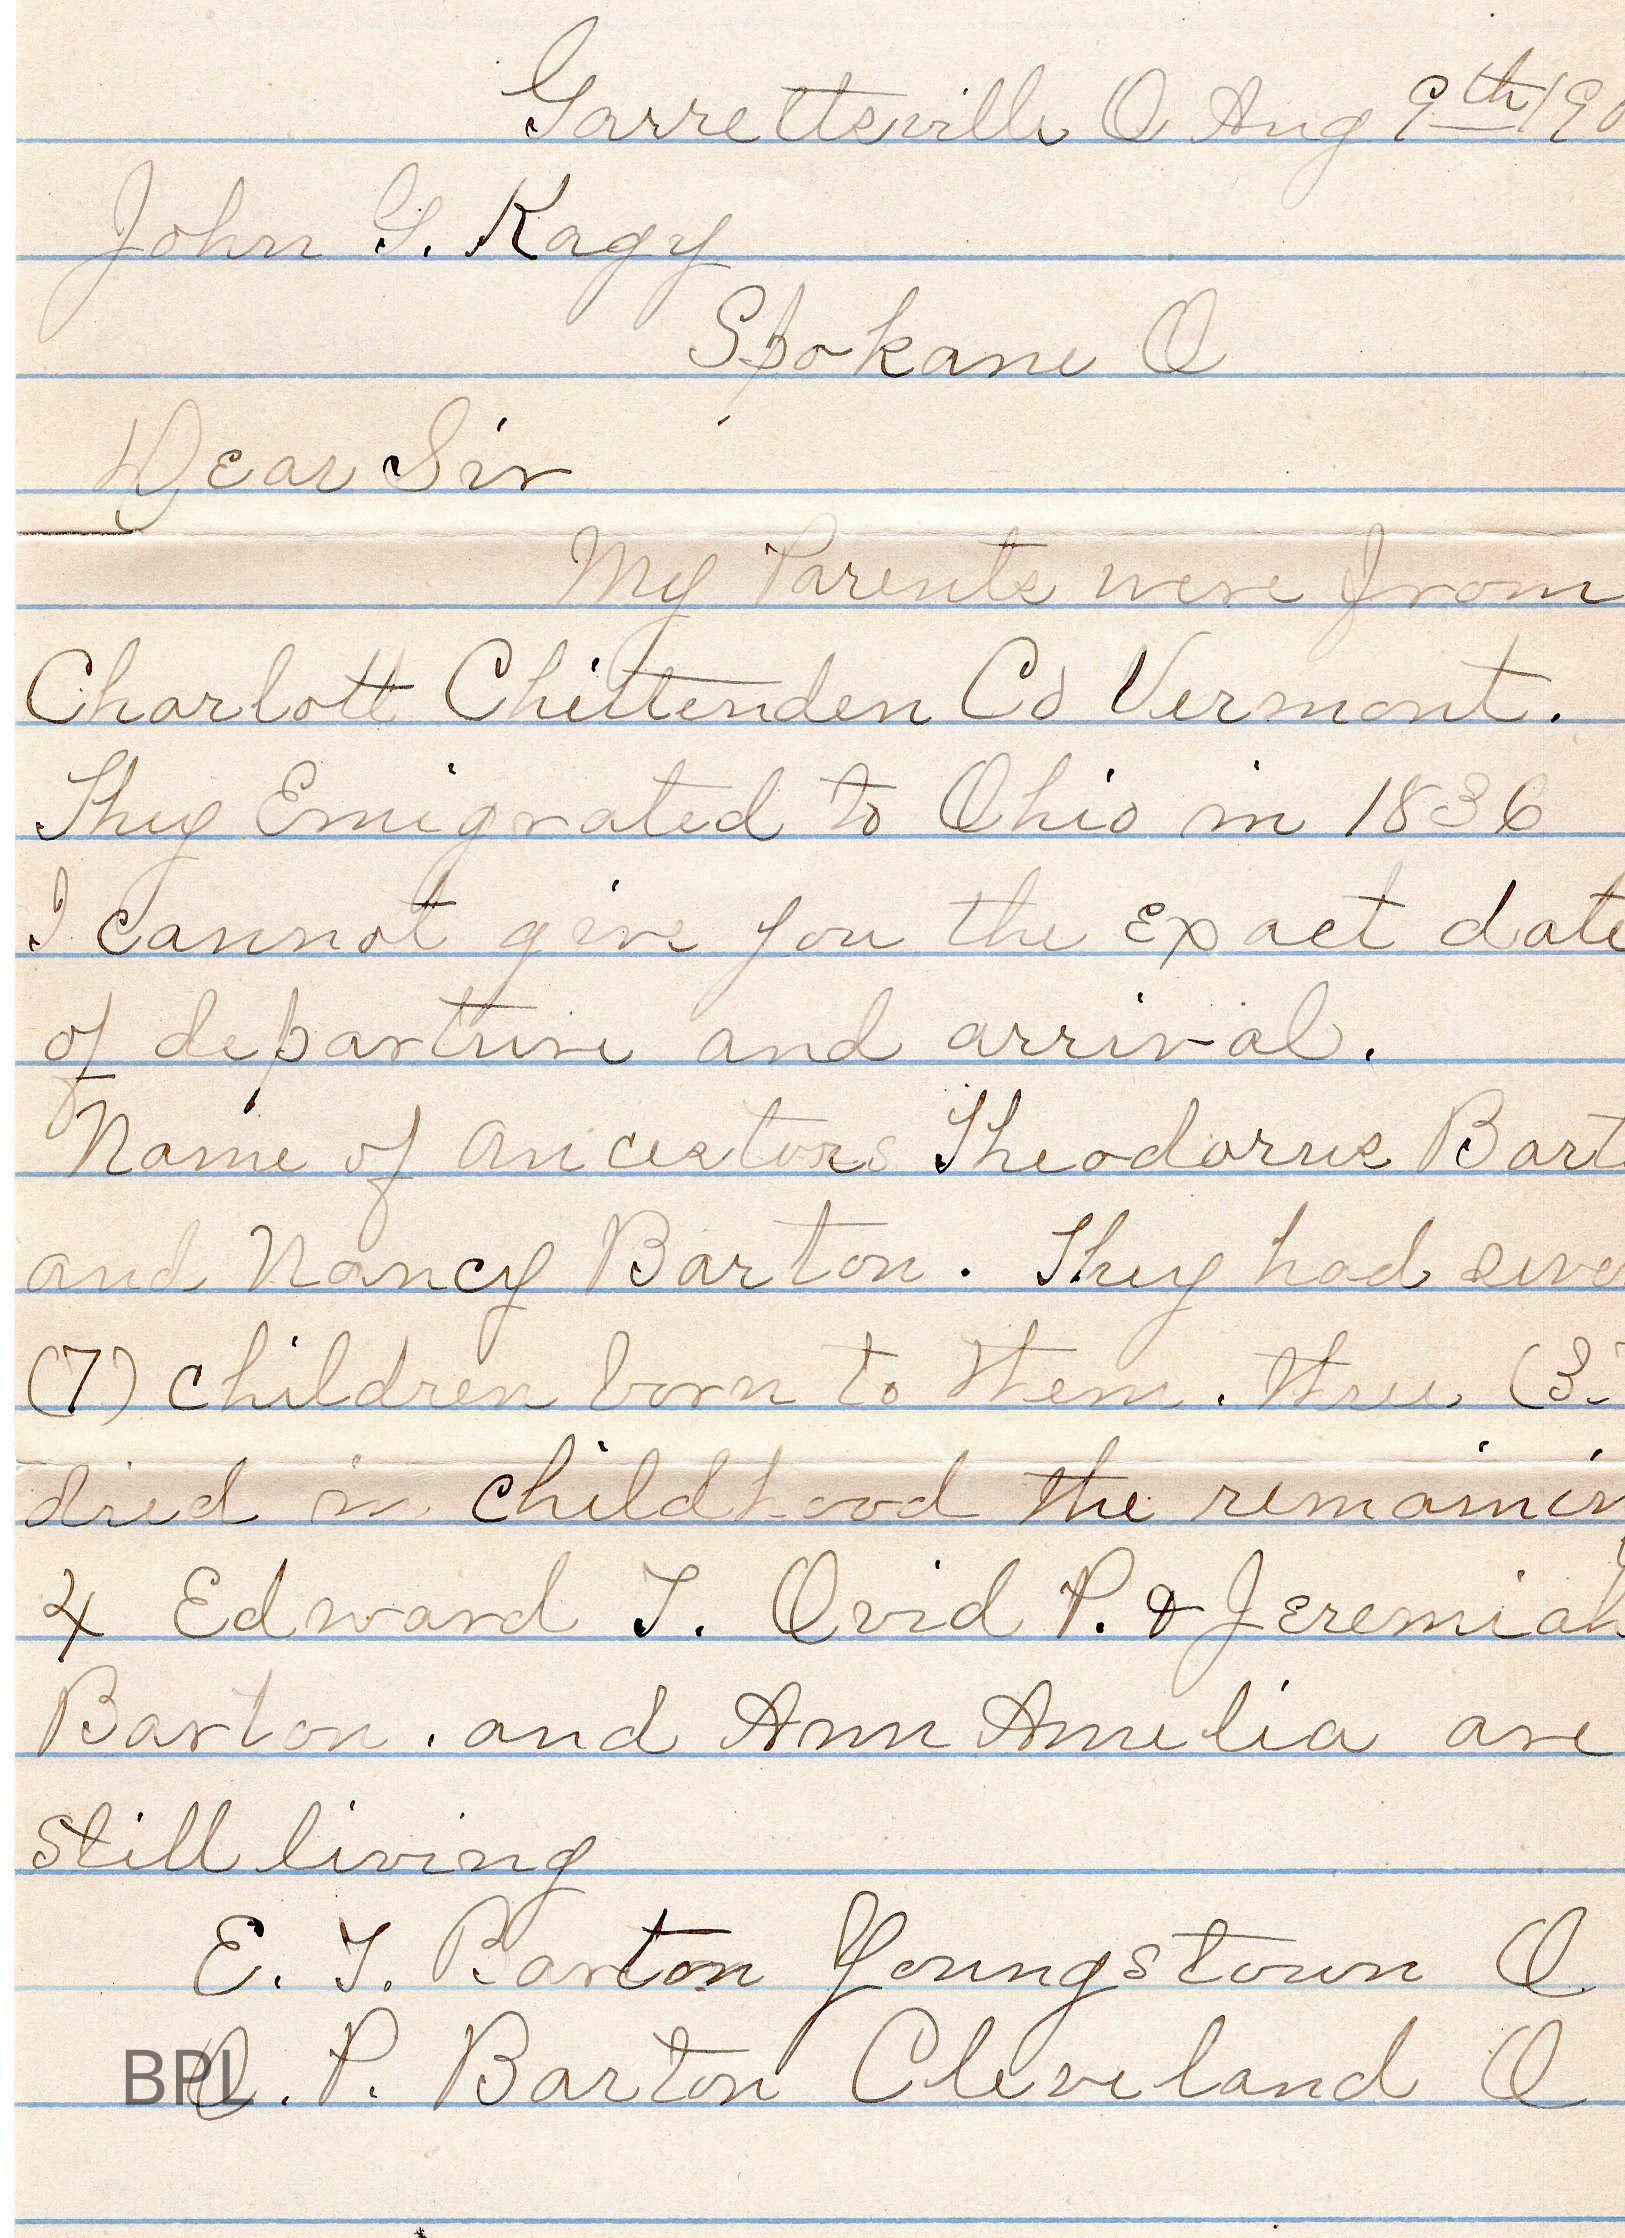 Garrettsville O Aug 9th 190
John G. Kagy
Spokane O
Dear Sir
My Parents were from
Charlott Chittenden Co Vermont.
They Emigrated to Ohio in 1836
I cannot give you the Exact date
of departure and arrival.
Name of Ancestors Theodorus Bart
and Nancy Barton. They had seve
(7) children born to them. three (3)
died in childhood the remainin
4 Edward T. Ovid P. & Jeremiah
Barton. and Ann Amelia are
still living
E. T. Barton Youngstown O
O. P. Barton Cleveland O
BPL